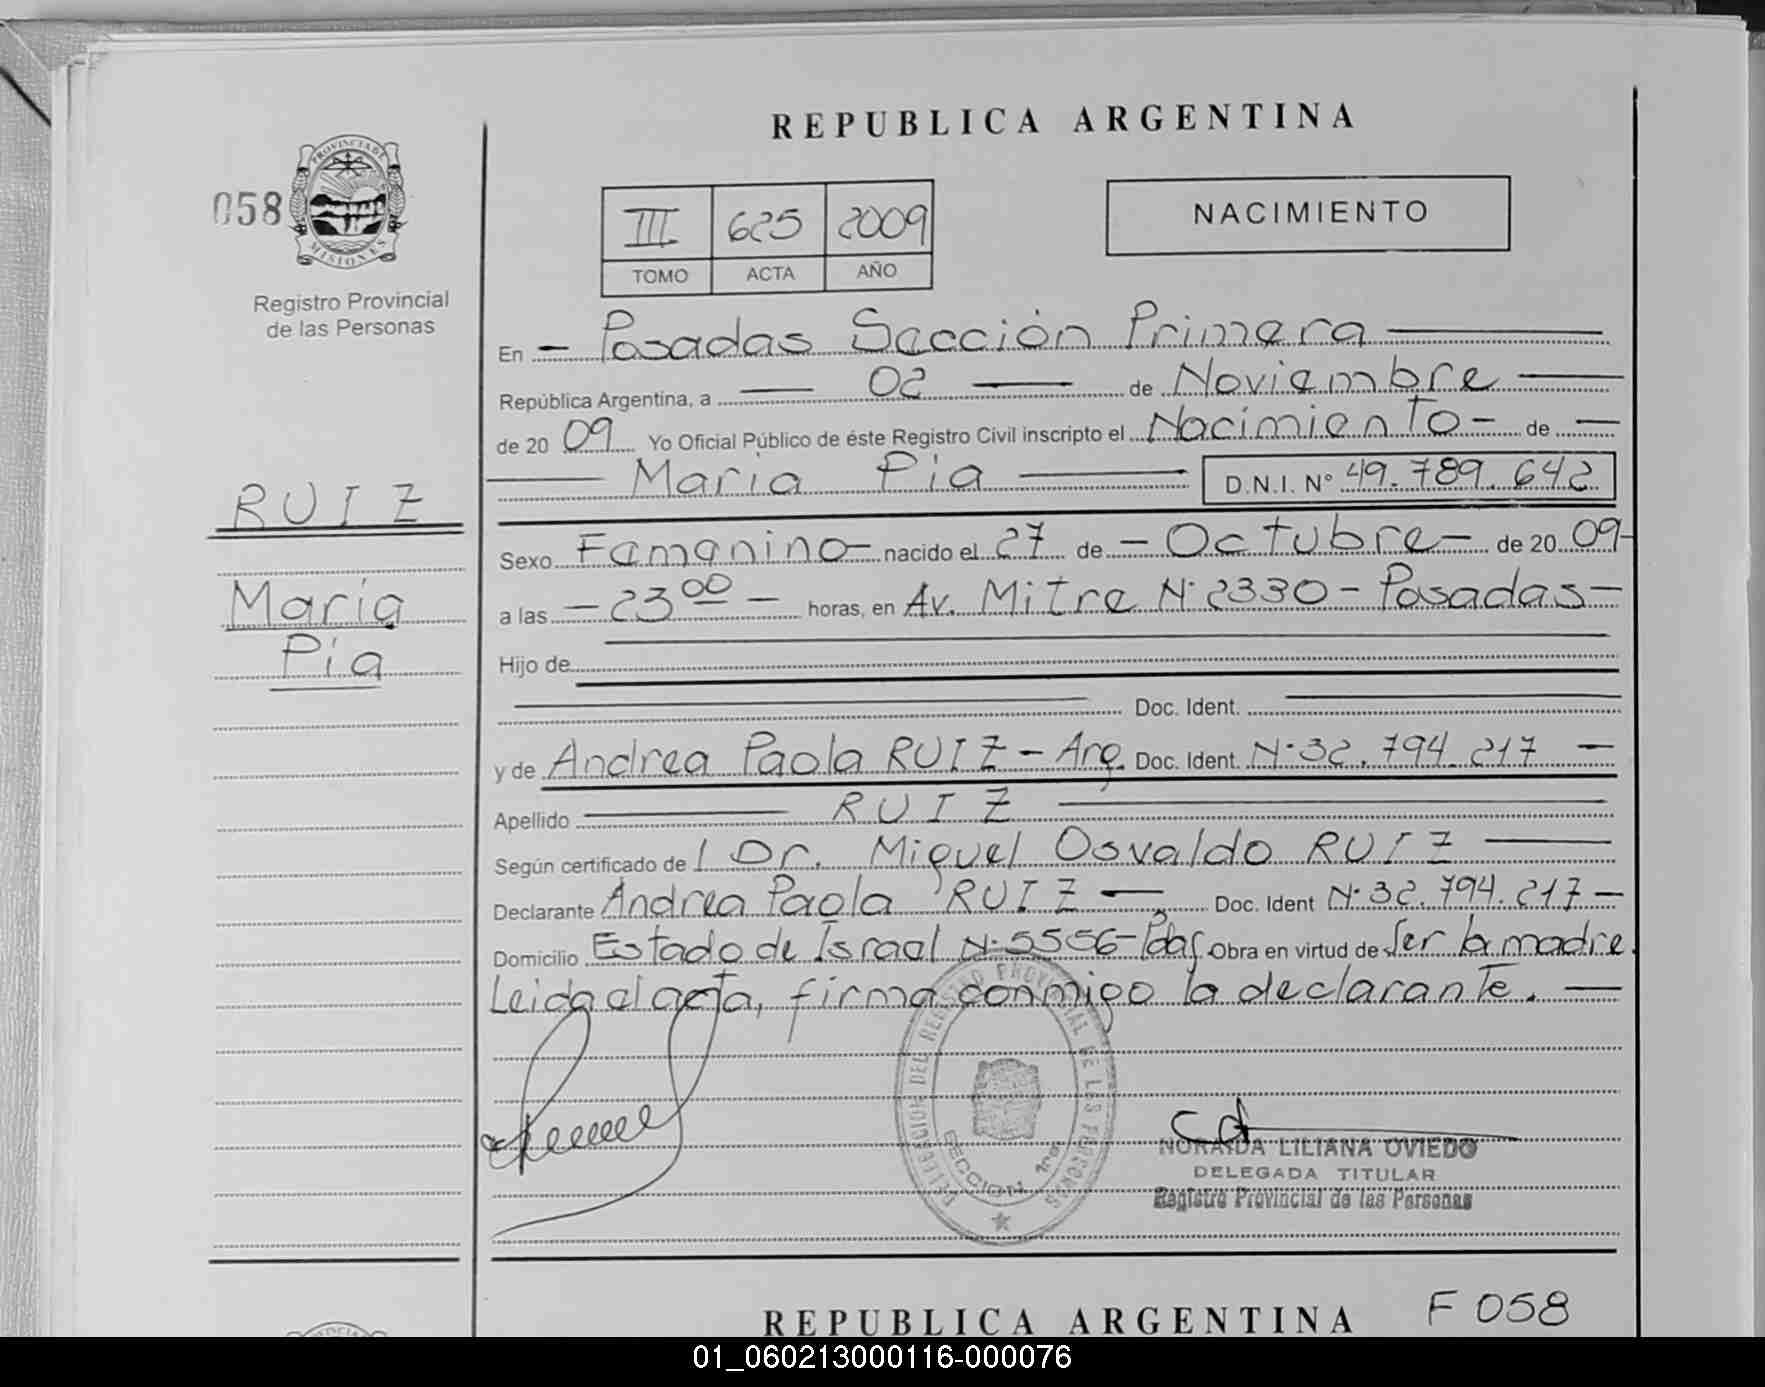 REPUBLICA ARGENTINA
058
PROVINCIA DE
MISIONES
Registro Provincial
de las Personas
III 625 2009
TOMO ACTA AÑO
NACIMIENTO
En - Posadas Sección Primera
República Argentina, a 02 de Noviembre
de 20 09 Yo Oficial Público de éste Registro Civil inscripto el Nacimiento - de
Maria Pia D.N.I. Nº 49.789.642
RUIZ
Maria
Pia
Sexo Femenino - nacido el 27 de - Octubre - de 20 09 -
a las - 23 00 - horas, en Av. Mitre Nº 2330 - Posadas -
Hijo de
Doc. Ident.
y de Andrea Paola RUIZ - Arg. Doc. Ident. Nº 32.794.217 -
Apellido RUIZ
Según certificado de l Dr. Miguel Osvaldo RUIZ
Declarante Andrea Paola RUIZ - Doc. Ident Nº 32.794.217 -
Domicilio Estado de Israel Nº 5556 - Pdas. Obra en virtud de Ser la madre.
Leida el acta, firma conmigo la declarante. -
DELEGACION DEL REGISTRO PROVINCIAL DE LAS PERSONAS
SECCION 1ra
NORAIDA LILIANA OVIEDO
DELEGADA TITULAR
Registro Provincial de las Personas
REPUBLICA ARGENTINA
F 058
01_060213000116-000076